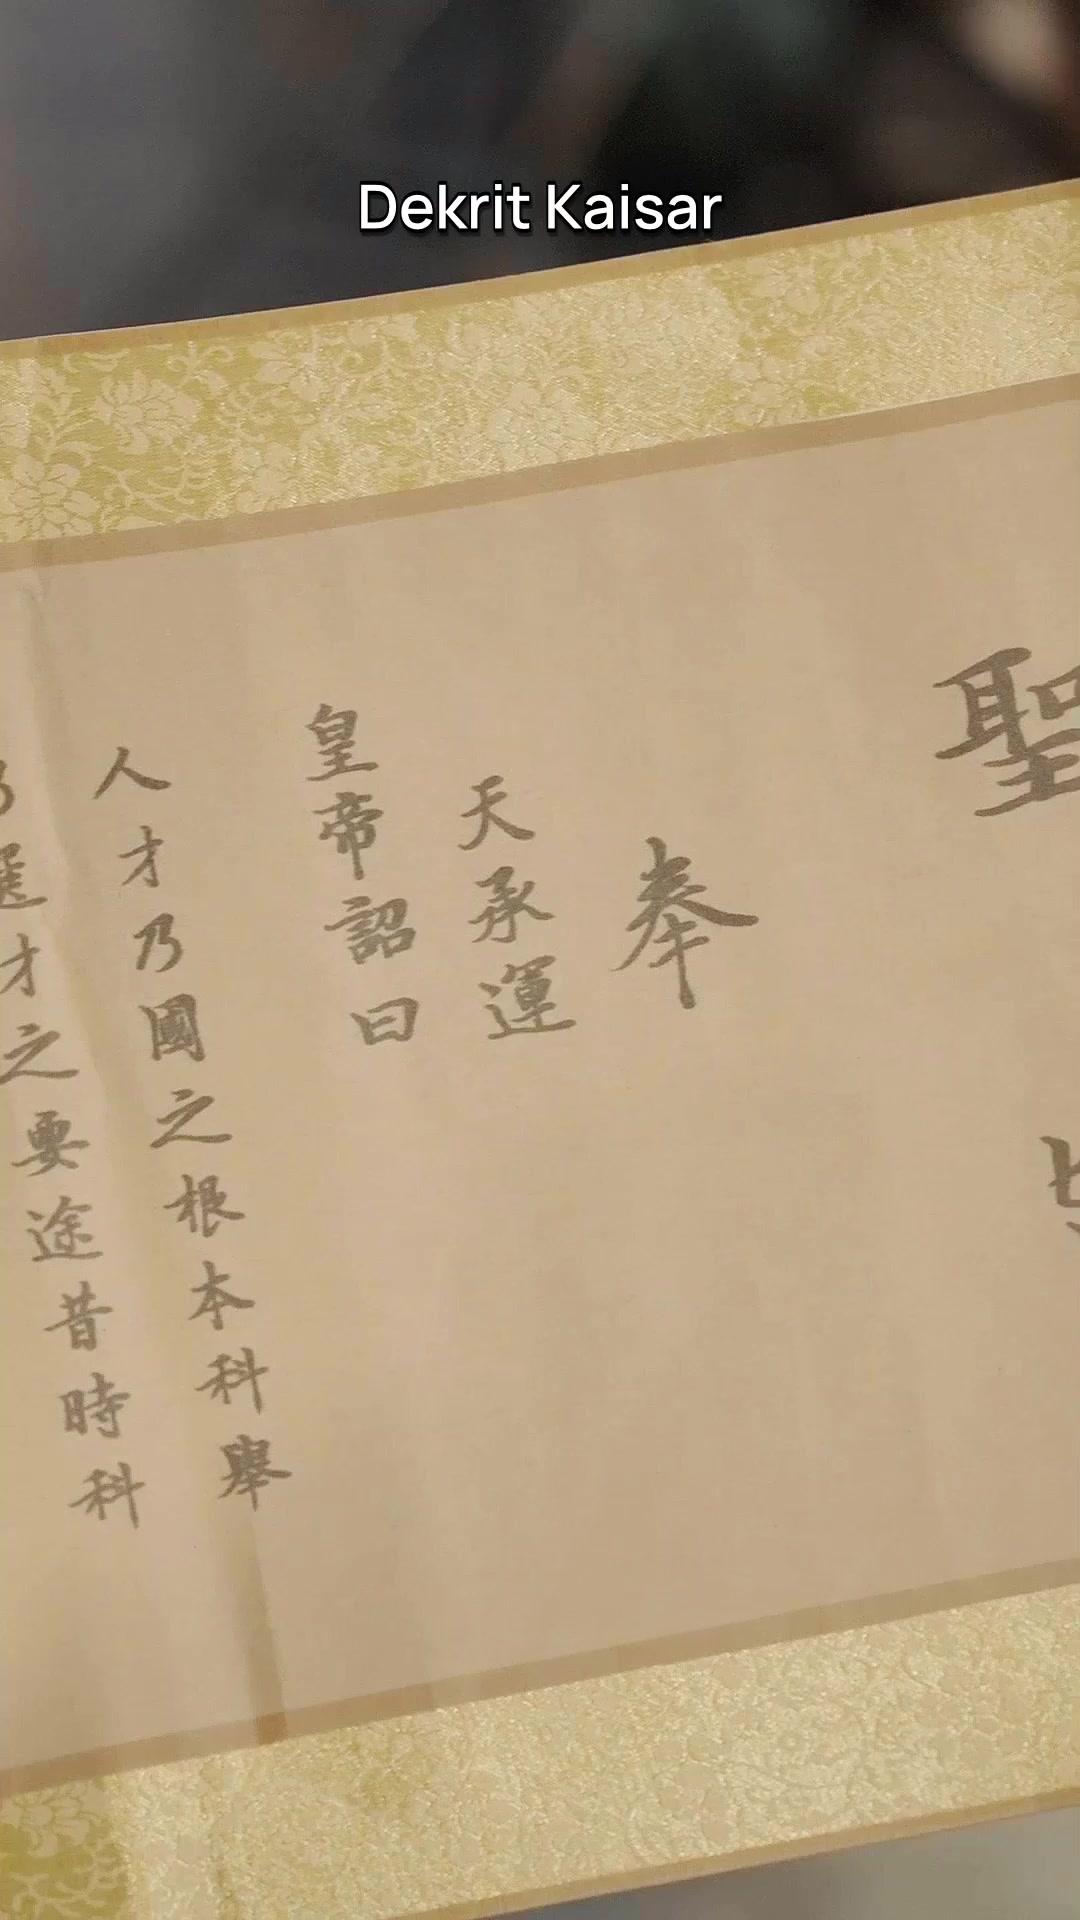 Dekrit Kaisar
聖旨
奉
天承運
皇帝詔曰
人才乃國之根本科舉
乃選才之要途昔時科